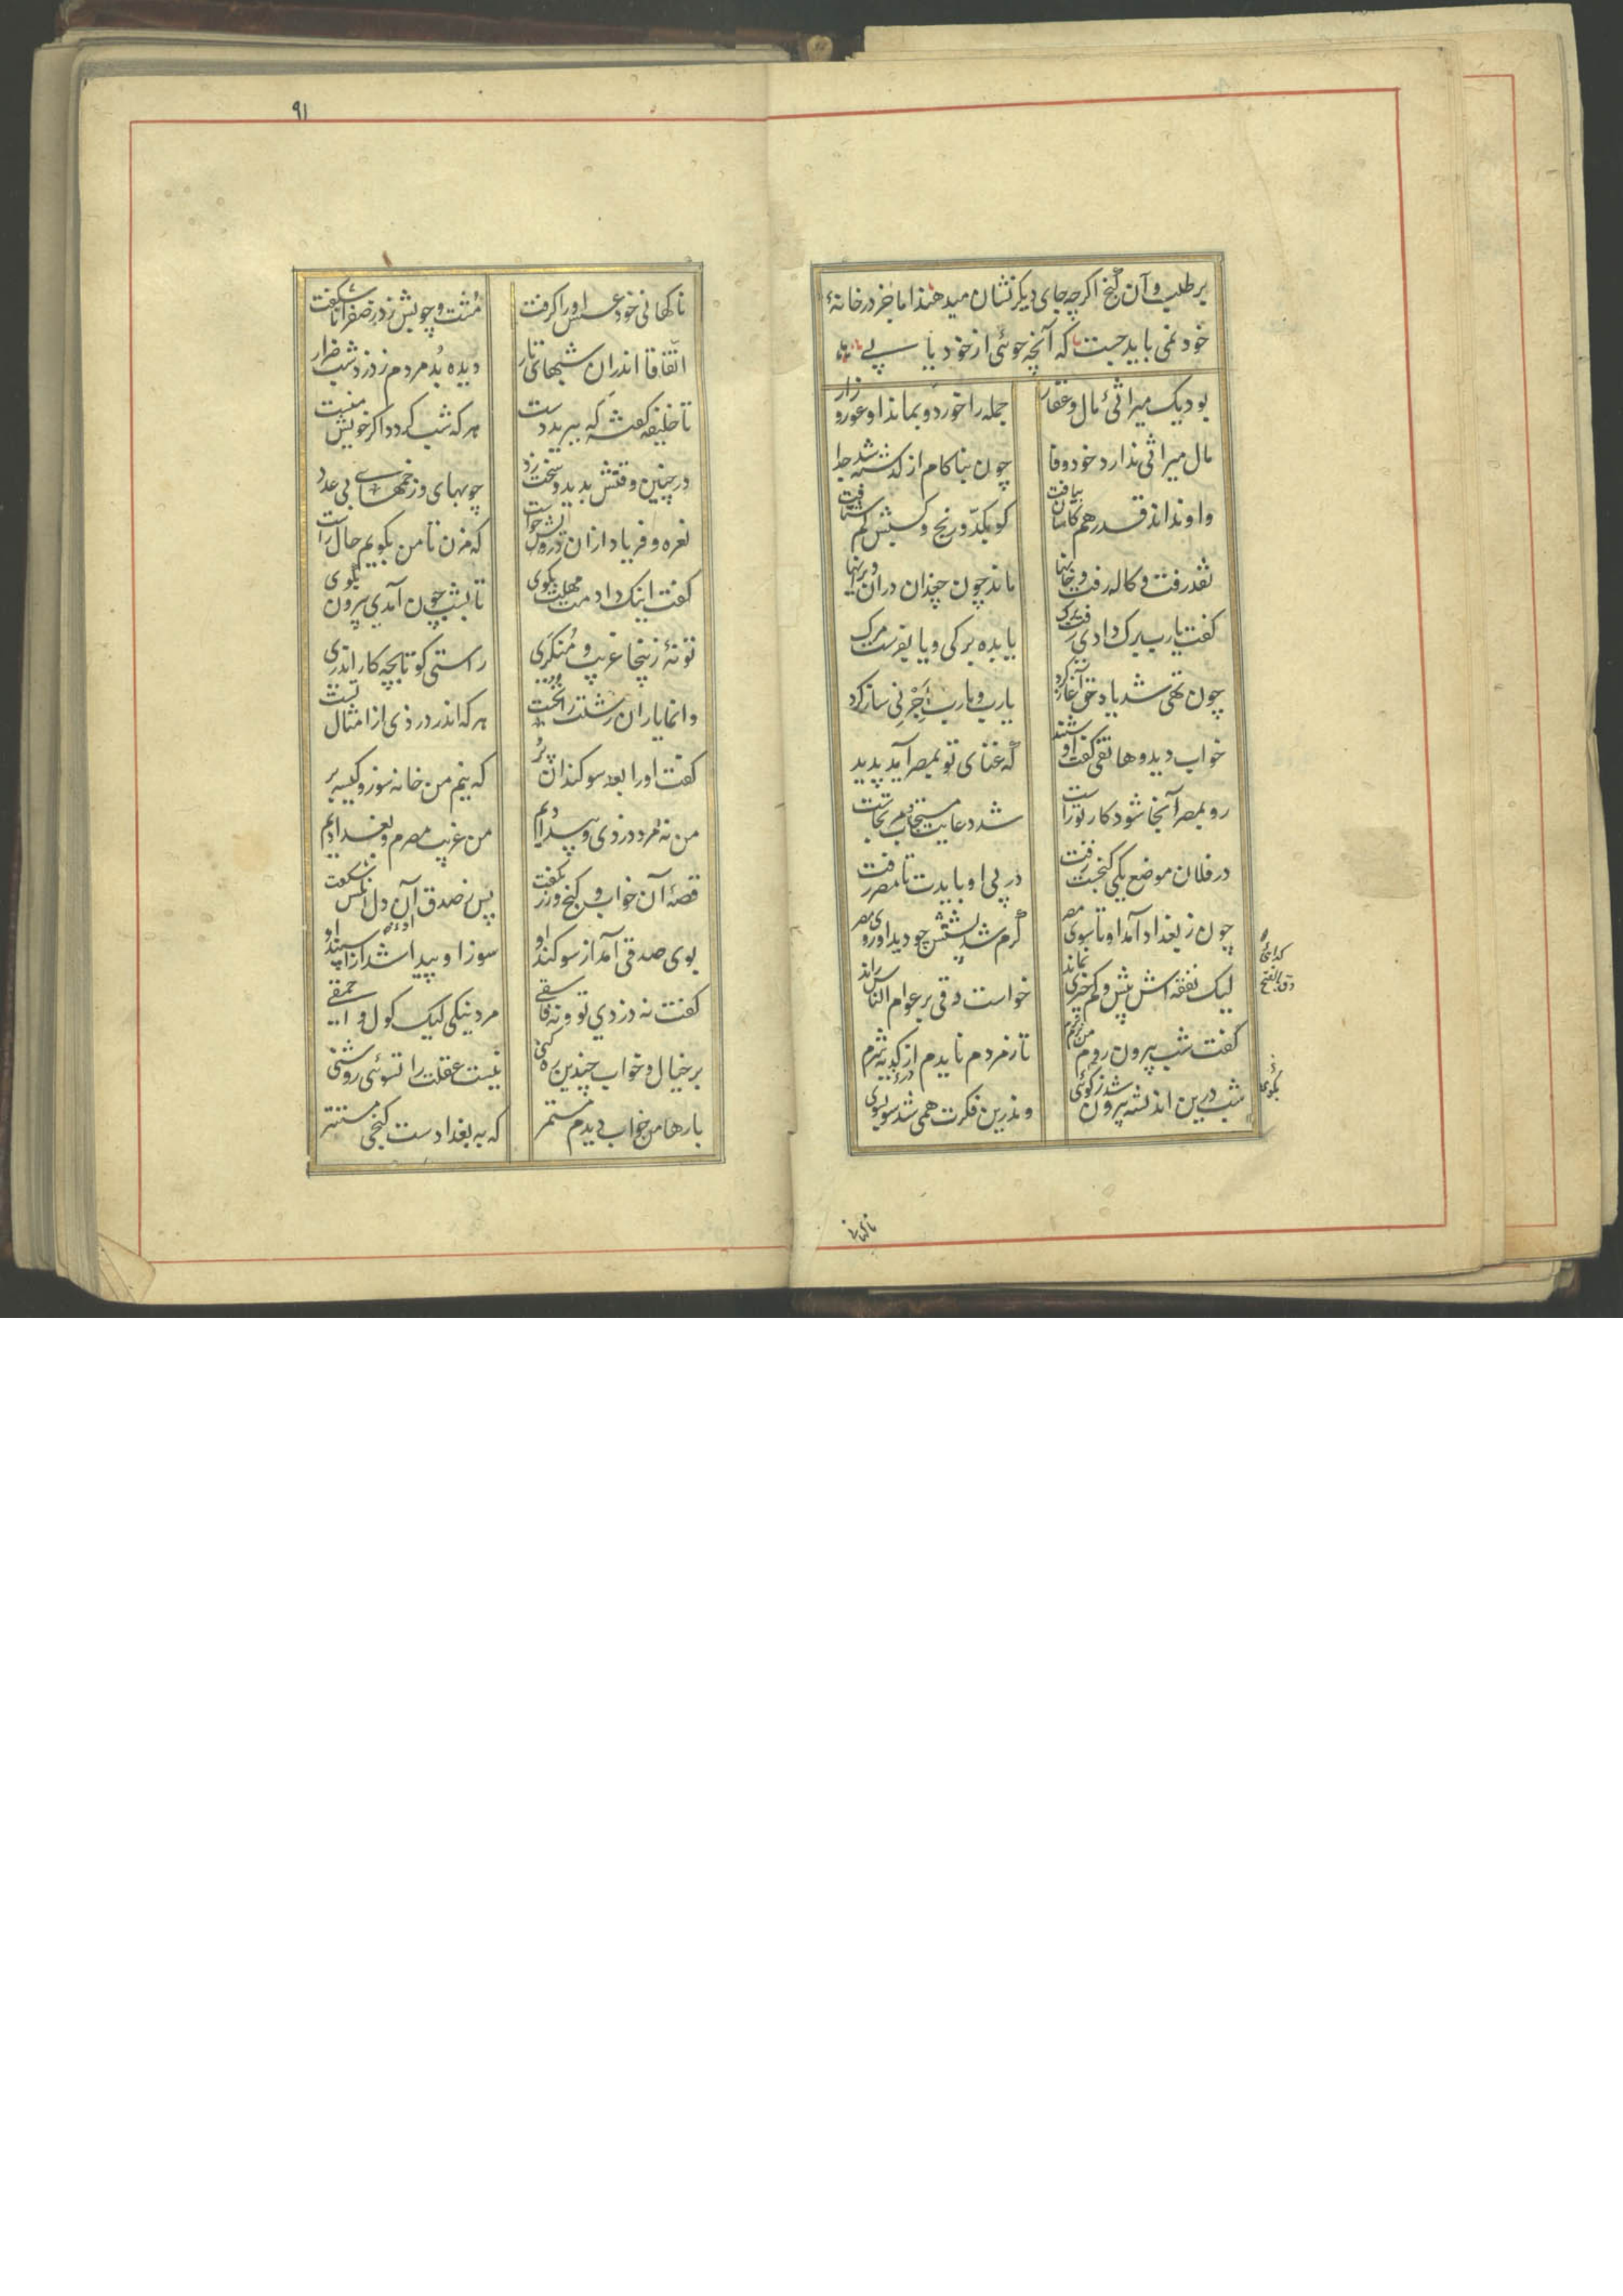 برطلب و آن گنج اگرچه جای دیگر نشان میدهند اما جز در خانهٔ
خود نمی باید جست که آنچه جوئی از خود یابی
بود یک میراثی مال و عقار جمله را خورد و بماند او عور و زار
مال میراثی ندارد خود وفا چون بناکام از گذشته شد جدا
او نداند قدر هم کاسان بیافت کو بکدّ و رنج و کسبش کم شتافت
نقد رفت و کاله رفت و خانها ماند چون چغدان در آن ویرانها
گفت یارب برگ دادی رفت برگ یا بده برگی و یا بفرست مرگ
چون تهی شد یاد حق آغاز کرد یارب و یارب اَجِرْنی ساز کرد
خواب دید و هاتفی گفت او شنید که غنای تو بمصر آید پدید
رو بمصر آنجا شود کار تو راست شد دعایت مستجاب
در فلان موضع یکی گنجست رفت در پی او بایدت تا مصر رفت
چون ز بغداد آمد او تا سوی مصر گرم شد پشتش چو دید او روی مصر
لیک نفقه‌اش بیش و کم چیزی نماند خواست دقی بر عوام الناس راند
گفت شب بیرون روم من نرم نرم تا ز مردم نایدم از کدیه شرم
شب درین اندیشه بیرون شد ز کوئی و ندرین فکرت همی شد سوبسوی
ناگهانی
۹۱
ناگهانی خود عسس او را گرفت مشت و چوبش زد ز صفرا ناشگفت
اتفاقا اندران شبهای تار دیده بُد مردم ز دزد شب ضرار
تا خلیفه گفت که ببرید دست هر که شب گردد اگر خویش منست
در چنین وقتش بدید و سخت زد چوبهای و زخمهای بی عدد
نعره و فریاد ازان درویش خواست که مزن تا من بگویم حال راست
گفت اینک دادمت مهلت بگوی تا بشب چون آمدی بیرون بکوی
تو نهٔ زینجا غریب و مُنکَری راستی گو تا بچه کار اندری
وانما یاران زشتت را نخست هر که اندر دزدی از امثال تست
گفت او را بعد سوگندان پُر که نیم من خانه سوز و کیسه بر
من نه مرد دزدی و بیدادیم من غریب مصرم و بغدادیم
قصهٔ آن خواب و گنج و زر بگفت پس ز صدق آن دل شکفت
بوی صدقی آمد از سوگند او سوز او پیدا شد از اسپند او
گفت نه دزدی تو و نه فاسقی مرد نیکی لیک گول و احمقی
بر خیال و خواب چندین ره کنی نیست عقلت را تسوئی روشنی
بارها من خواب دیدم مستمر که به بغدادست گنجی مستتر